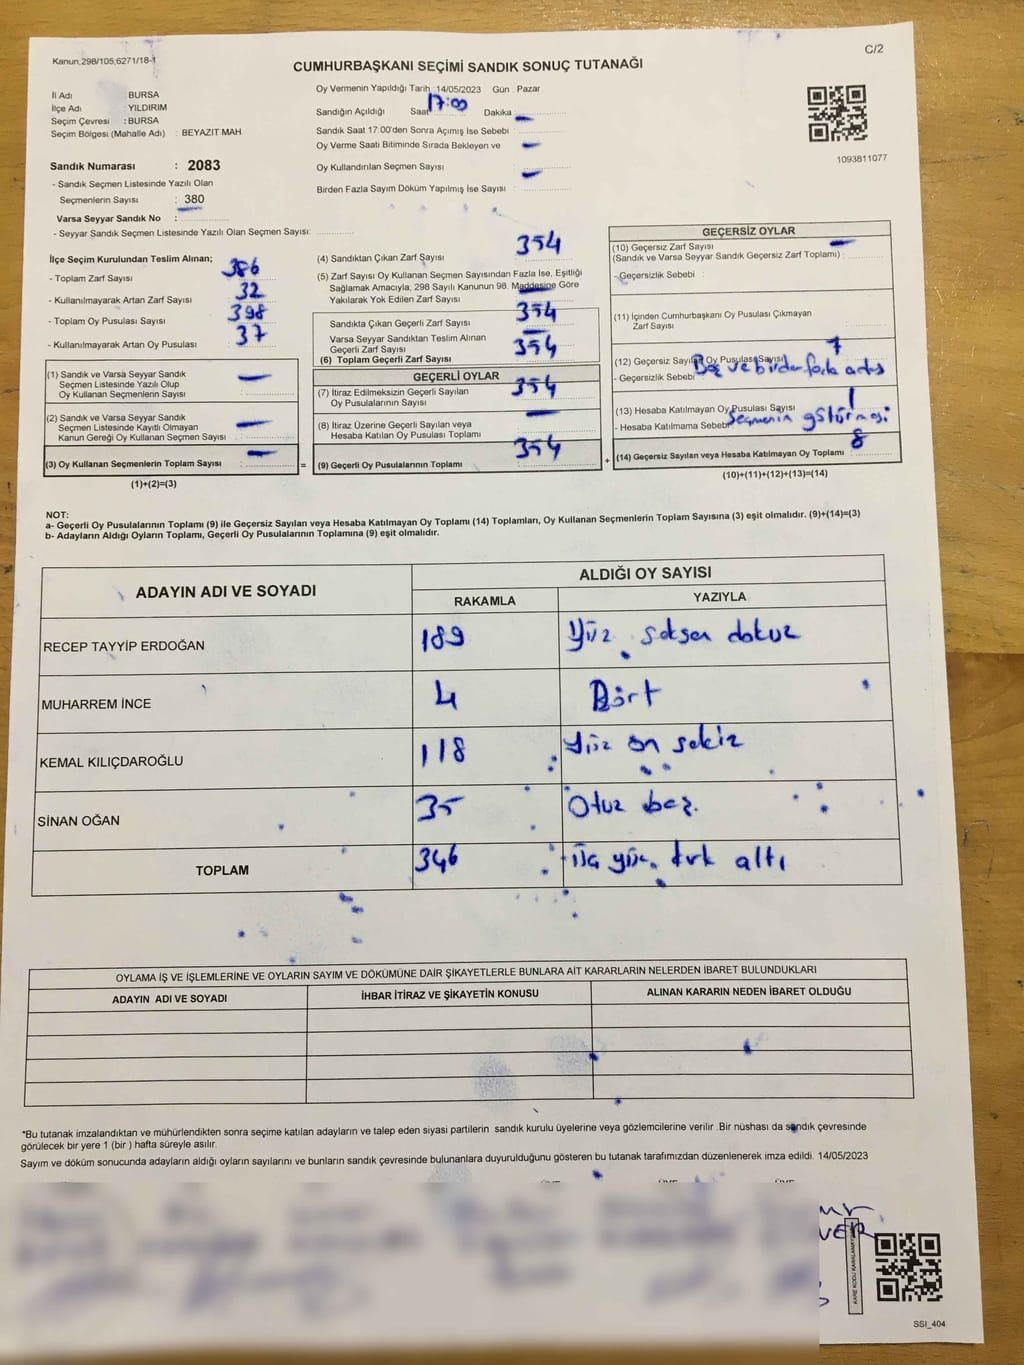 Kanun,298/105,6271/18-1
C/2
CUMHURBAŞKANI SEÇİMİ SANDIK SONUÇ TUTANAĞI
İl Adı : BURSA
İlçe Adı : YILDIRIM
Seçim Çevresi : BURSA
Seçim Bölgesi (Mahalle Adı) : BEYAZIT MAH.
Sandık Numarası : 2083
- Sandık Seçmen Listesinde Yazılı Olan
Seçmenlerin Sayısı : 380
Varsa Seyyar Sandık No :
- Seyyar Sandık Seçmen Listesinde Yazılı Olan Seçmen Sayısı:
Oy Vermenin Yapıldığı Tarih : 14/05/2023 Gün : Pazar
Sandığın Açıldığı Saat 17:00 Dakika :
Sandık Saat 17:00'den Sonra Açımış İse Sebebi :
Oy Verme Saati Bitiminde Sırada Bekleyen ve
Oy Kullandırılan Seçmen Sayısı :
Birden Fazla Sayım Döküm Yapılmış İse Sayısı :
1093811077
İlçe Seçim Kurulundan Teslim Alınan;
- Toplam Zarf Sayısı : 386
- Kullanılmayarak Artan Zarf Sayısı : 32
- Toplam Oy Pusulası Sayısı : 398
- Kullanılmayarak Artan Oy Pusulası : 37
(1) Sandık ve Varsa Seyyar Sandık
Seçmen Listesinde Yazılı Olup
Oy Kullanan Seçmenlerin Sayısı :
(2) Sandık ve Varsa Seyyar Sandık
Seçmen Listesinde Kayıtlı Olmayan
Kanun Gereği Oy Kullanan Seçmen Sayısı :
(3) Oy Kullanan Seçmenlerin Toplam Sayısı :
(1)+(2)=(3)
=
(4) Sandıktan Çıkan Zarf Sayısı : 354
(5) Zarf Sayısı Oy Kullanan Seçmen Sayısından Fazla İse, Eşitliği
Sağlamak Amacıyla; 298 Sayılı Kanunun 98. Maddesine Göre
Yakılarak Yok Edilen Zarf Sayısı
Sandıkta Çıkan Geçerli Zarf Sayısı : 354
Varsa Seyyar Sandıktan Teslim Alınan
Geçerli Zarf Sayısı
(6) Toplam Geçerli Zarf Sayısı 354
GEÇERLİ OYLAR
(7) İtiraz Edilmeksizin Geçerli Sayılan
Oy Pusulalarının Sayısı 354
(8) İtiraz Üzerine Geçerli Sayılan veya
Hesaba Katılan Oy Pusulası Toplamı
(9) Geçerli Oy Pusulalarının Toplamı 354
+
GEÇERSİZ OYLAR
(10) Geçersiz Zarf Sayısı
(Sandık ve Varsa Seyyar Sandık Geçersiz Zarf Toplamı) :
- Geçersizlik Sebebi :
(11) İçinden Cumhurbaşkanı Oy Pusulası Çıkmayan
Zarf Sayısı
(12) Geçersiz Sayılan Oy Pusulası Sayısı 7
- Geçersizlik Sebebi Boş ve birden fazla
(13) Hesaba Katılmayan Oy Pusulası Sayısı 1
- Hesaba Katılmama Sebebi Seçmenin götürmesi
(14) Geçersiz Sayılan veya Hesaba Katılmayan Oy Toplamı 8
(10)+(11)+(12)+(13)=(14)
NOT:
a- Geçerli Oy Pusulalarının Toplamı (9) ile Geçersiz Sayılan veya Hesaba Katılmayan Oy Toplamı (14) Toplamları, Oy Kullanan Seçmenlerin Toplam Sayısına (3) eşit olmalıdır. (9)+(14)=(3)
b- Adayların Aldığı Oyların Toplamı, Geçerli Oy Pusulalarının Toplamına (9) eşit olmalıdır.
ADAYIN ADI VE SOYADI
ALDIĞI OY SAYISI
RAKAMLA YAZIYLA
RECEP TAYYİP ERDOĞAN 189 Yüz seksen dokuz
MUHARREM İNCE 4 Dört
KEMAL KILIÇDAROĞLU 118 Yüz on sekiz
SİNAN OĞAN 35 Otuz beş.
TOPLAM 346 üç yüz kırk altı
OYLAMA İŞ VE İŞLEMLERİNE VE OYLARIN SAYIM VE DÖKÜMÜNE DAİR ŞİKAYETLERLE BUNLARA AİT KARARLARIN NELERDEN İBARET BULUNDUKLARI
ADAYIN ADI VE SOYADI İHBAR İTİRAZ VE ŞİKAYETİN KONUSU ALINAN KARARIN NEDEN İBARET OLDUĞU
*Bu tutanak imzalandıktan ve mühürlendikten sonra seçime katılan adayların ve talep eden siyasi partilerin sandık kurulu üyelerine veya gözlemcilerine verilir .Bir nüshası da sandık çevresinde
görülecek bir yere 1 (bir ) hafta süreyle asılır.
Sayım ve döküm sonucunda adayların aldığı oyların sayılarını ve bunların sandık çevresinde bulunanlara duyurulduğunu gösteren bu tutanak tarafımızdan düzenlenerek imza edildi. 14/05/2023
SSI_404